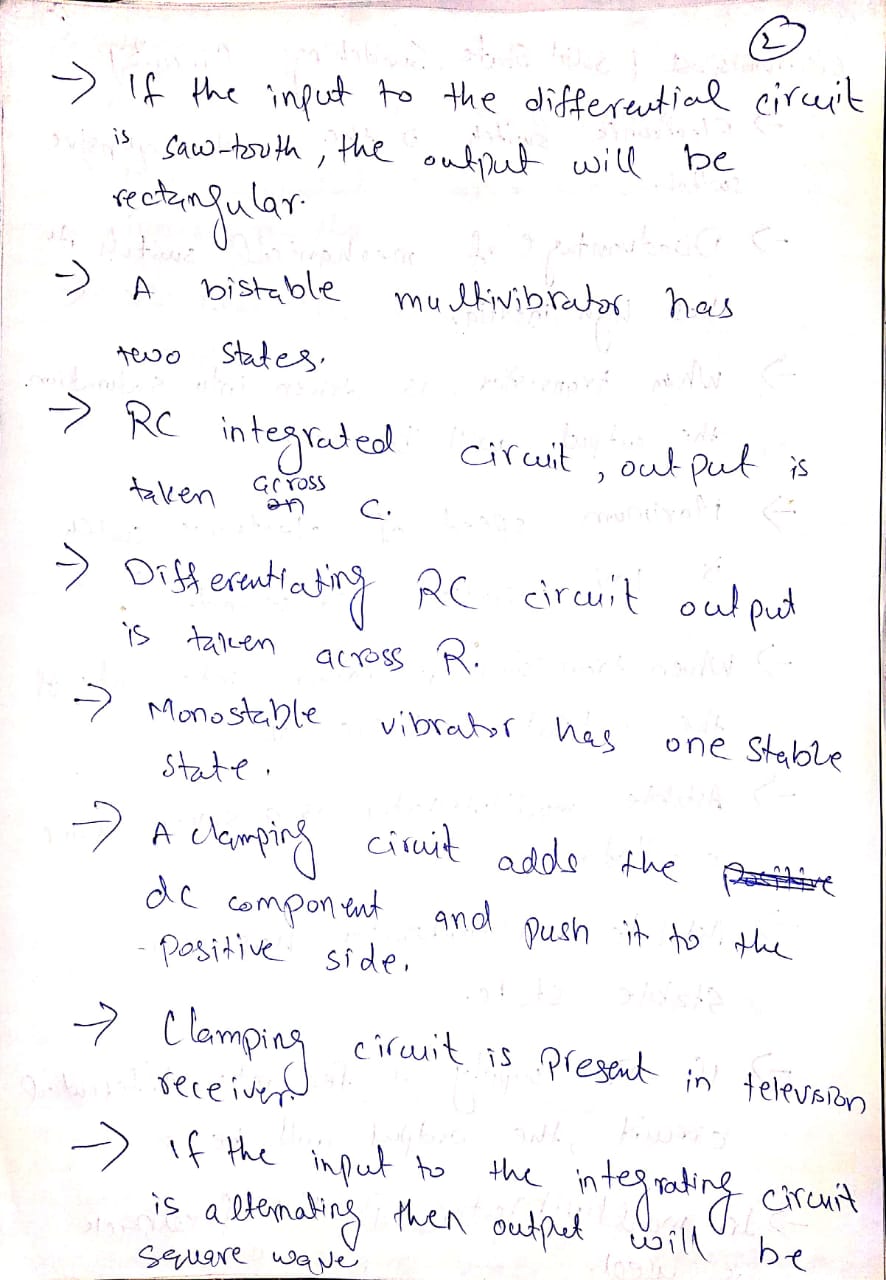 2
→ If the input to the differential circuit
is saw-tooth, the output will be
rectangular.
→ A bistable multivibrator has
two states.
→ RC integrated circuit, output is
taken across on C.
→ Differentiating RC circuit output
is taken across R.
→ Monostable vibrator has one stable
state.
→ A clamping ciruit adds the positive
dc component and push it to the
positive side.
→ Clamping ciruit is present in televsion
receiver.
→ If the input to the integrating circuit
is alternating then output will be
square wave